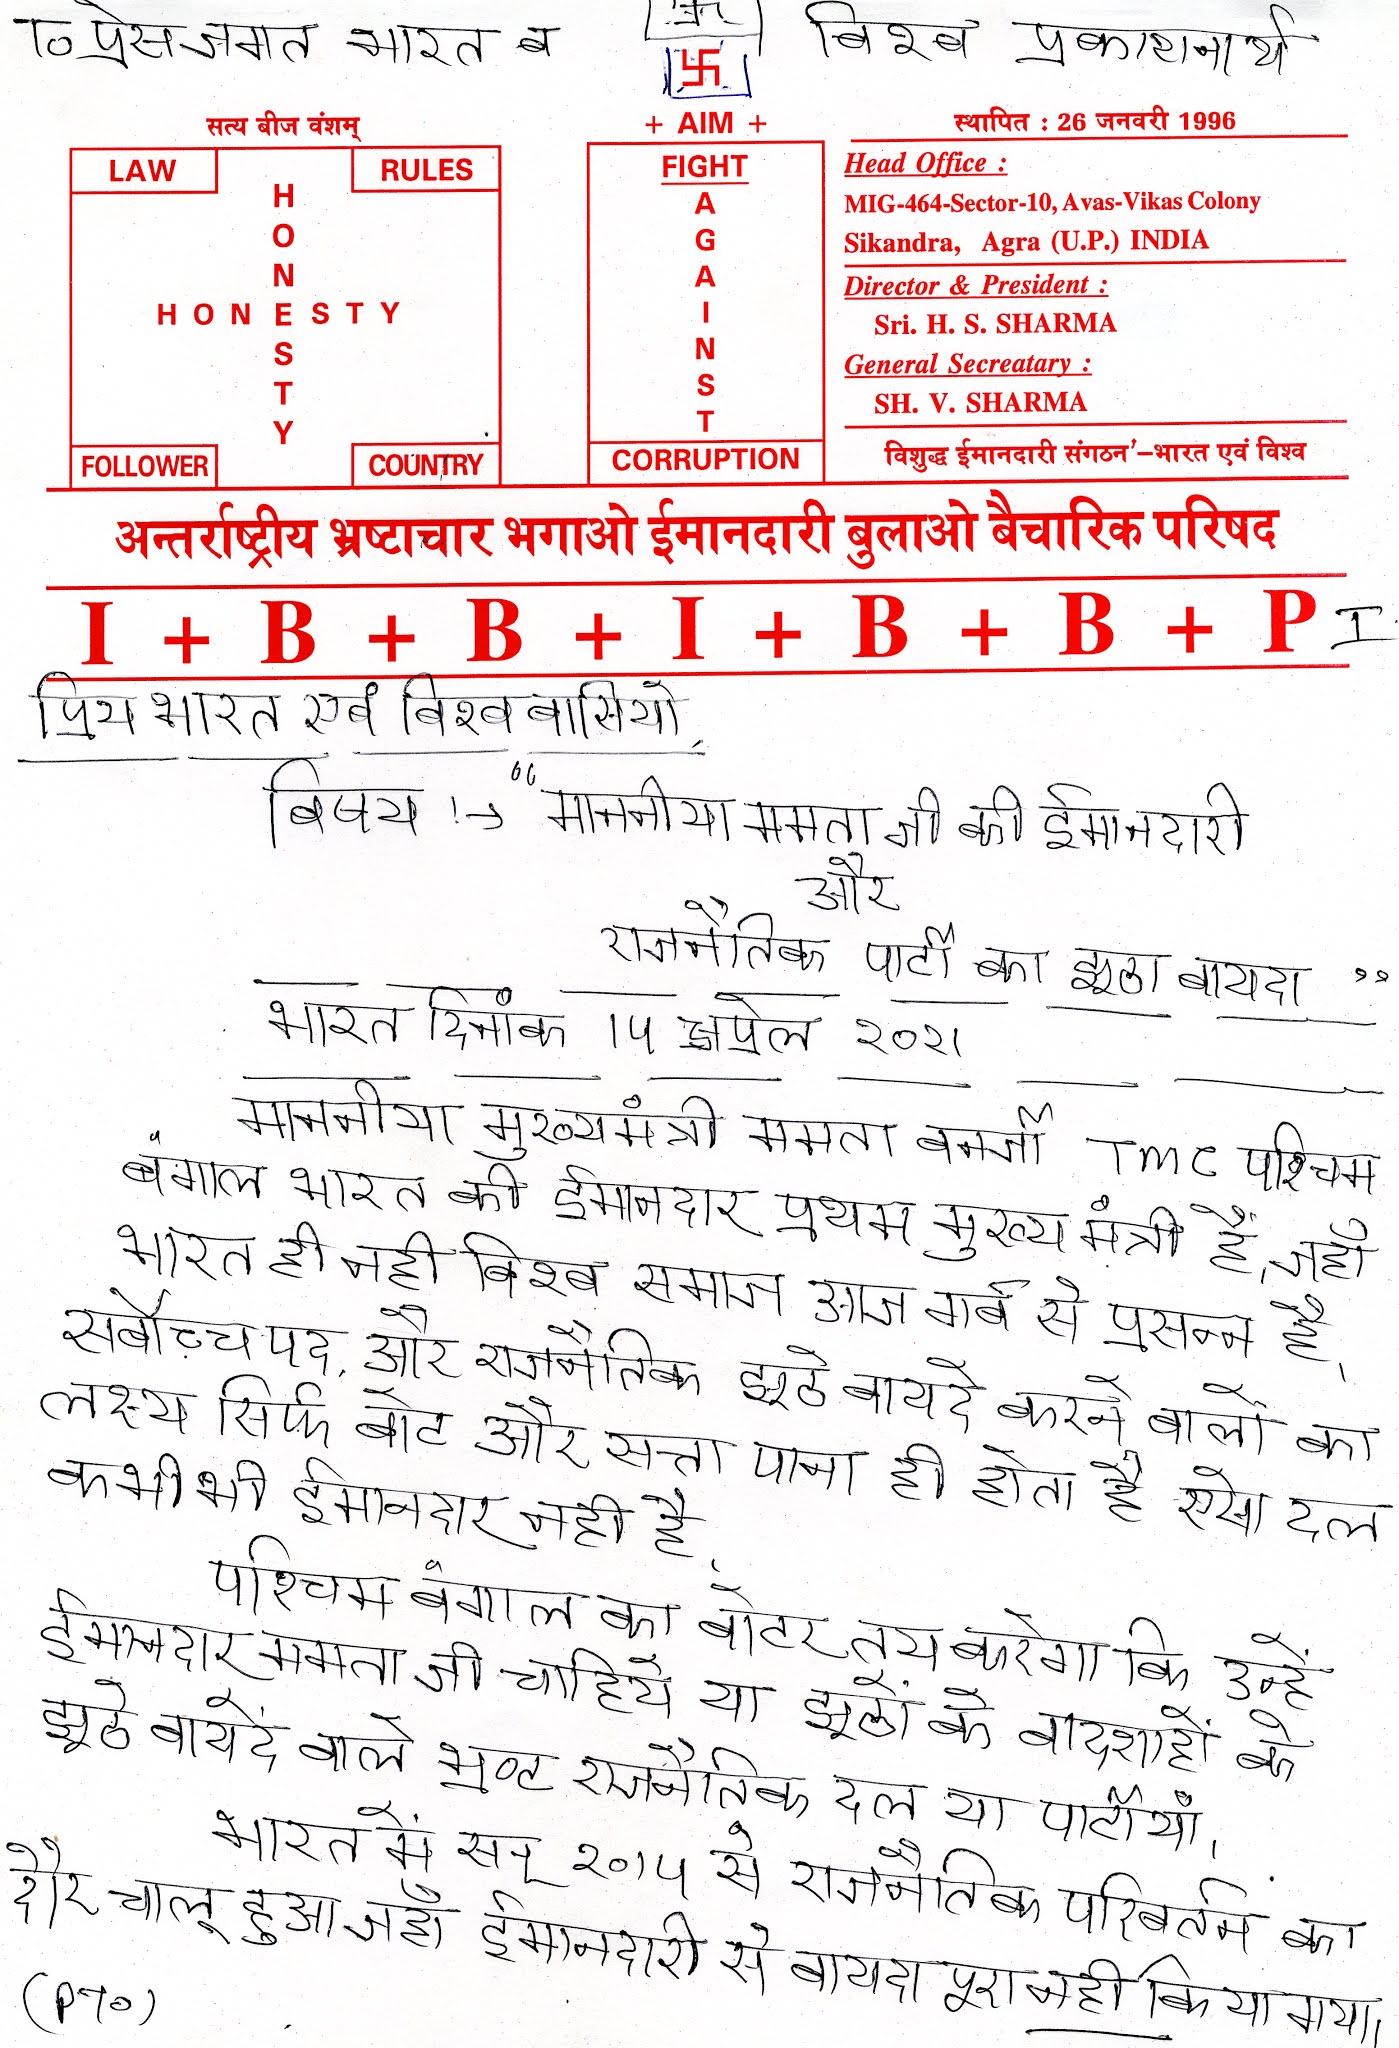 To प्रेस जगत भारत व विश्व प्रकाशनार्थ
सत्य बीज वंशम्
+ AIM +
स्थापित : 26 जनवरी 1996
LAW
RULES
HONESTY
HONESTY
FOLLOWER
COUNTRY
FIGHT
AGAINST
CORRUPTION
Head Office :
MIG-464-Sector-10, Avas-Vikas Colony
Sikandra, Agra (U.P.) INDIA
Director & President :
Sri. H. S. SHARMA
General Secreatary :
SH. V. SHARMA
विशुद्ध ईमानदारी संगठन'–भारत एवं विश्व
अन्तर्राष्ट्रीय भ्रष्टाचार भगाओ ईमानदारी बुलाओ बैचारिक परिषद
I + B + B + I + B + B + P I
प्रिय भारत एवं विश्व वासियों,
विषय :→ "माननीया ममता जी की ईमानदारी
और
राजनैतिक पार्टी का झूठा वायदा "
भारत दिनांक 14 अप्रेल २०२१
माननीया मुख्यमंत्री ममता बनर्जी TMC पश्चिम
बंगाल भारत की ईमानदार प्रथम मुख्य मंत्री हैं, जहाँ
भारत ही नही विश्व समाज आज गर्व से प्रसन्न है,
सर्वोच्च पद, और राजनैतिक झूठे वायदे करने वालों का
लक्ष्य सिर्फ वोट और सत्ता पाना ही होता है ऐसा दल
कभी भी ईमानदार नही है,
पश्चिम बंगाल का वोटर तय करेगा कि उन्हें
ईमानदार ममता जी चाहिये या झूठों के बादशाहों के
झूठे वायदें वाले भ्रष्ट राजनैतिक दल या पार्टीयाँ,
भारत में सन् २०१४ से राजनैतिक परिवर्तन का
दौर चालू हुआ जहाँ ईमानदारी से वायदा पूरा नही किया गया।
(PTO)